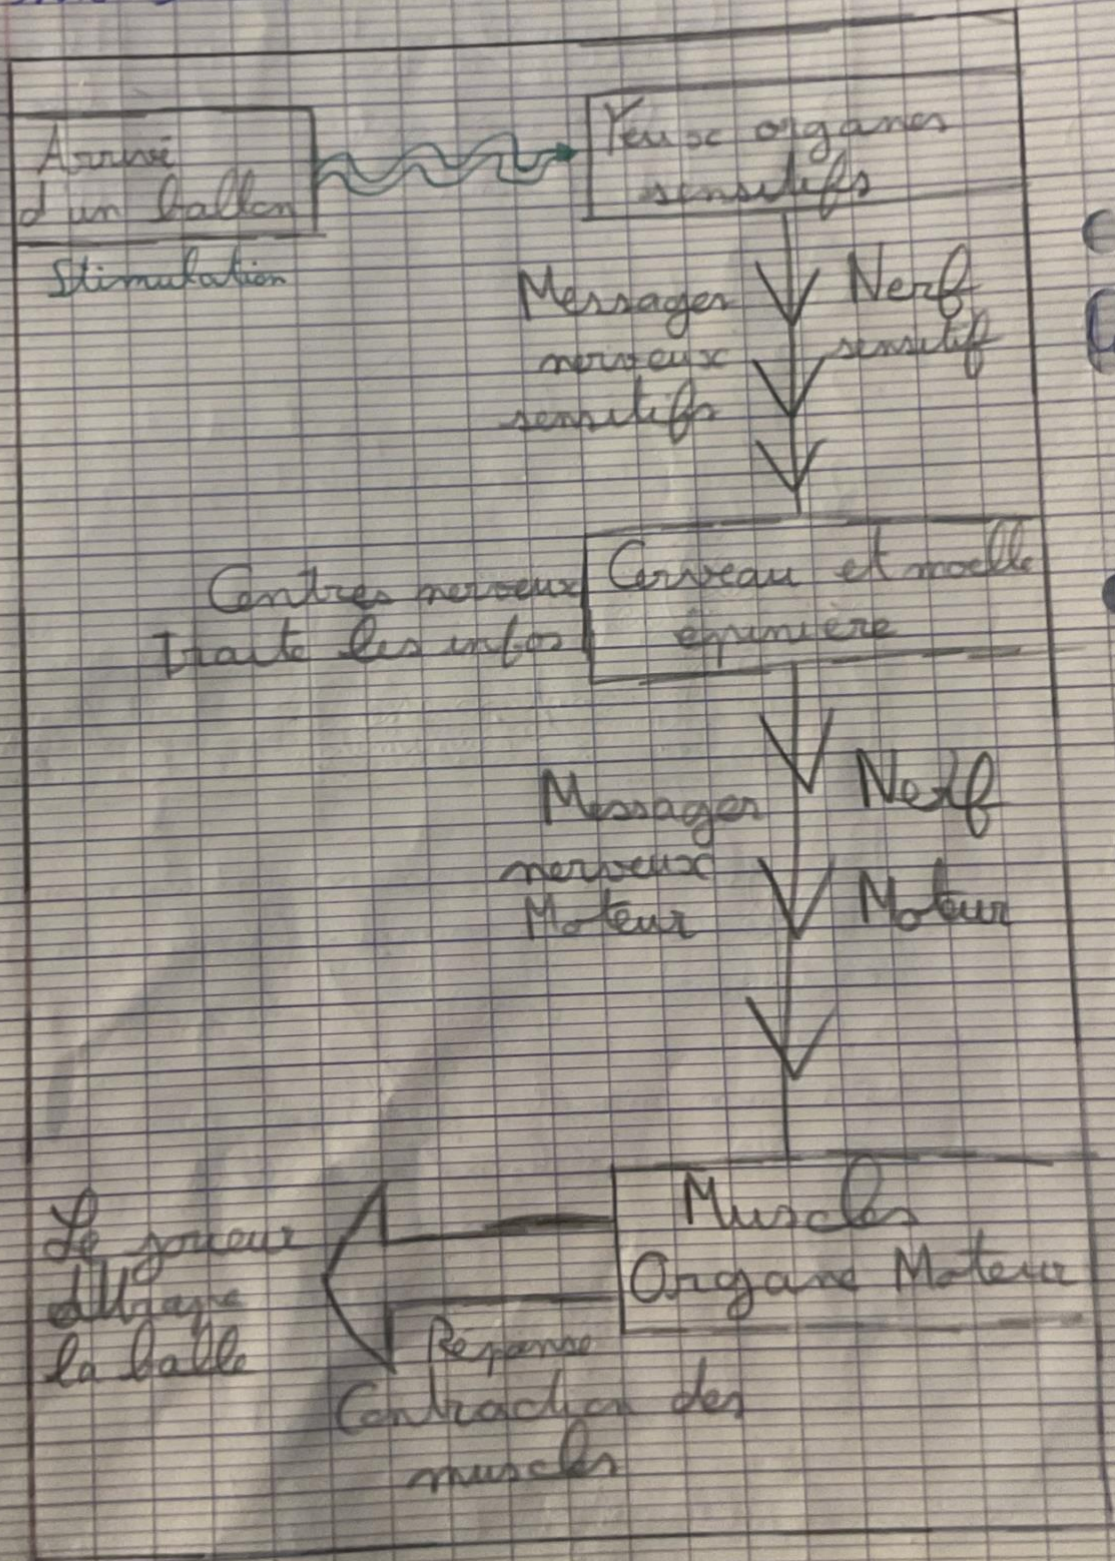 Arrivé
d'un ballon
Stimulation
Yeux organes
sensitifs
Messages
nerveux
sensitifs
Nerf
sensitif
Centres nerveux
Traite les infos
Cerveau et moelle
épinière
Messages
nerveux
Moteur
Nerf
Moteur
Muscles
Organe Moteur
Le joueur
dégage
la balle
Réponse
Contraction des
muscles